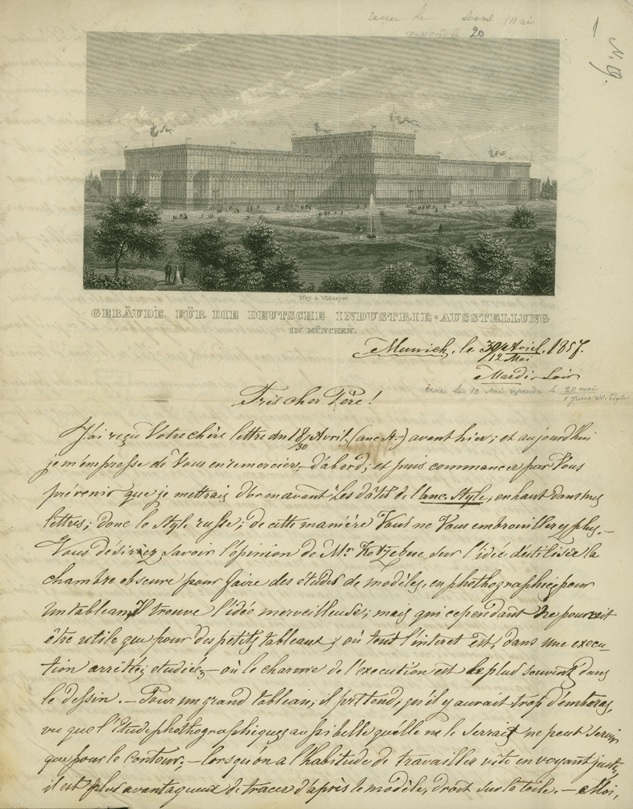 20
N. 9.
GEBÄUDE FÜR DIE DEUTSCHE INDUSTRIE-AUSSTELLUNG
IN MÜNCHEN.
Munich, le 30 Avril / 12 Mai 1857.
Mardi-Soir
Très cher Père!
J'ai reçu Votre chère lettre du 18/30 Avril (anc. st.) avant hier; et aujourdhui
je m'empresse de Vous en remercier, d'abord; et puis commencer par Vous
prévenir que je mettrais dorenavant les dates de l'anc. Style, en haut dans mes
lettres; donc le Style russe; de cette manière Vous ne Vous embrouillerez plus.—
Vous désiriez savoir l'opinion de Mr. Kotzebue sur l'idée d'utiliser la
chambre obscure pour faire des études de modèles, en photographie, pour
un tableau. Il trouve l'idée merveilleuse; mais qui cependant ne pourrait
être utile que pour des petits tableaux, où tout l'interet est dans une execu-
tion arrêtée, etudiée,— où le charme de l'execution est le plus souvent dans
le dessin.— Pour un grand tableau, il prétend, qu'il y aurait trop d'embaras,
vu que l'Etude photographique, aussi belle qu'elle ne le serrait ne peut servir
que pour le contour.— lorsqu'on a l'habitude de travailler vite en voyant juste,
il est plus avantageux de tracer d'après le modèle, droit sur la toile.— Moi,